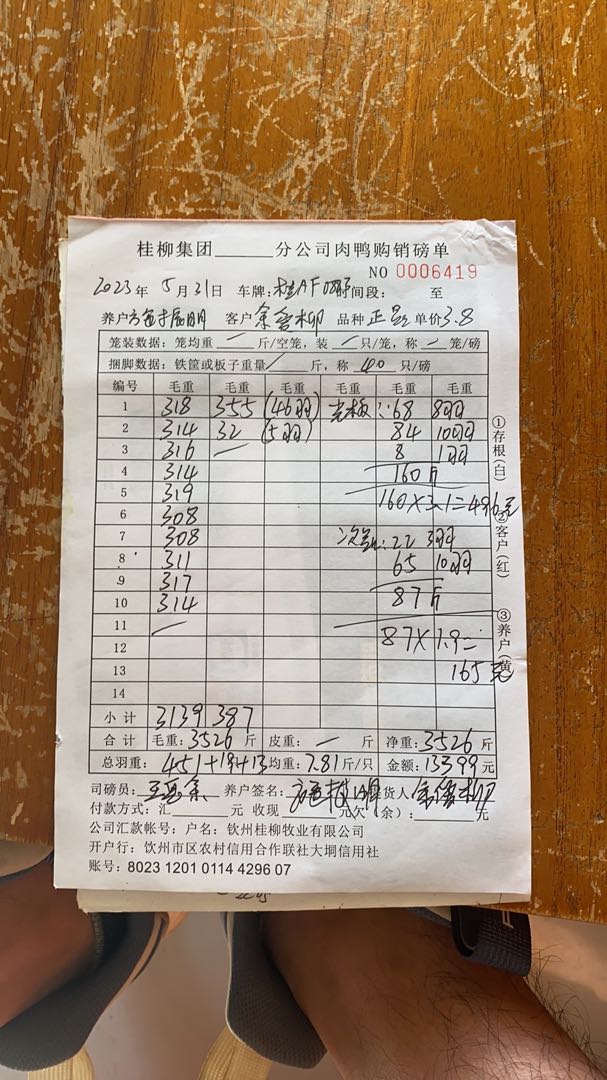 桂柳集团______分公司肉鸭购销磅单
NO 0006419
2023年 5月31日 车牌:桂AF 时间段: 至
养户 客户 柳 品种 正品 单价3.8
笼装数据:笼均重 — 斤/空笼,装 — 只/笼,称 — 笼/磅
捆脚数据:铁筐或板子重量 — 斤,称 40 只/磅
编号 毛重 毛重 毛重 毛重 毛重 毛重
1 318 355 (46羽) 光板: 68 8羽
2 314 32 (5羽) 84 10羽
3 316 — 8 1羽
4 314 160斤
5 319 160×3.1=496元
6 308
7 308 22 3羽
8 311 65 10羽
9 317 87斤
10 314
11 — 87×1.9=
12
13 165元
14
小计 3139 387
合计 毛重:3526斤 皮重: — 斤 净重:3526斤
总羽重: 451+19+13 均重:7.81斤/只 金额:13399元
司磅员: 养户签名: 货人
付款方式:汇______元 收现______元欠(余):______元
公司汇款帐号:户名:钦州桂柳牧业有限公司
开户行:钦州市区农村信用合作联社大垌信用社
账号:8023 1201 0114 4296 07
①存根(白)
②客户(红)
③养户(黄)